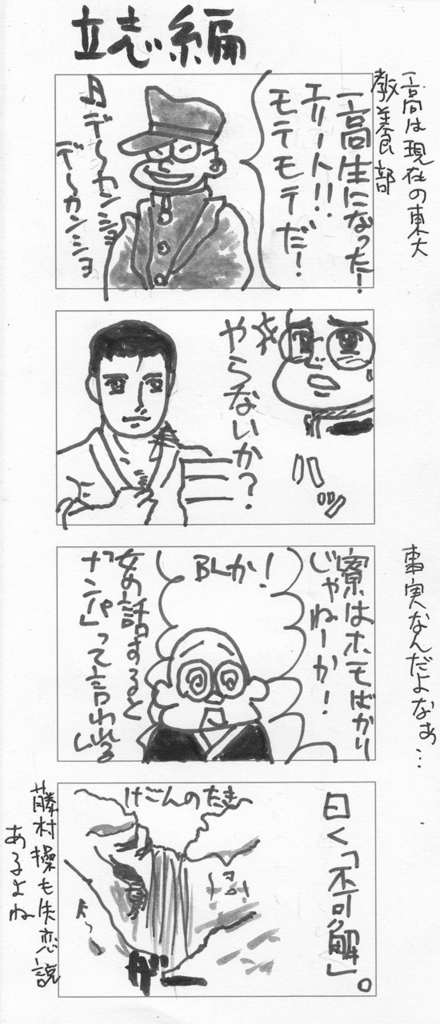 立志編
一高は現在の東大
教養部
一高生になった！
エリート!!
モテモテだ！
デ〜カンショ
デ〜カンショ
やらないか？
ハッ
事実なんだよなぁ…
寮はホモばかり
じゃねーか！
BLか！
女の話すると
「ナンパ」って言われる
曰く「不可解」。
けごんのたき
が
藤村操も失恋説
あるよね